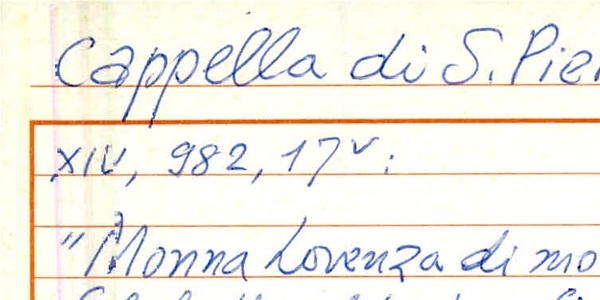 Cappella di S. Pie
XIV, 982, 17v:
"Monna Lorenza di mo